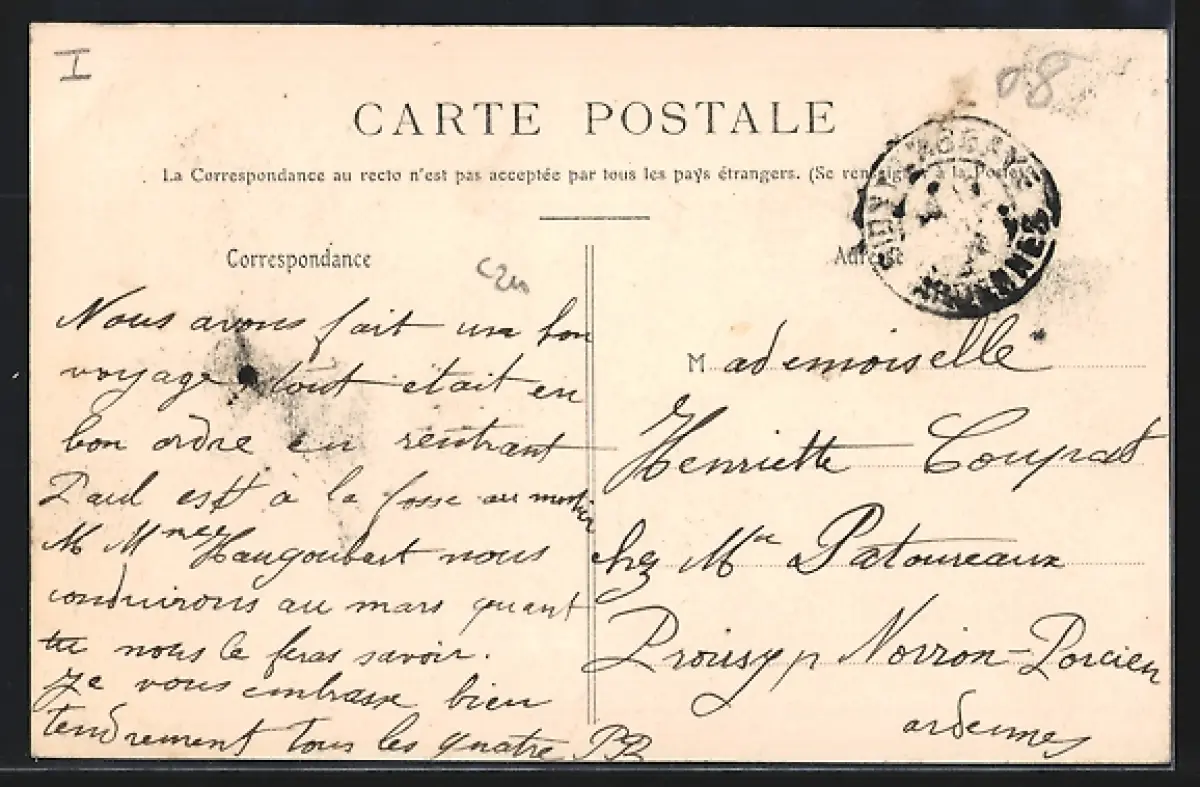 I
08
CARTE POSTALE
La Correspondance au recto n'est pas acceptée par tous les pays étrangers. (Se renseigner à la Poste)
Correspondance
Adresse
ARDENNES
Nous avons fait un bon
voyage tout était en
bon ordre en rentrant
Paul est à la fosse au mortier
M Mmes Haugoubert nous
conduirons au mars quant
tu nous le feras savoir.
Je vous embrasse bien
tendrement tous les quatre PR
Mademoiselle
Henriette Coupat
chez Me Patoureaux
Provisy p Novion-Porcien
ardennes